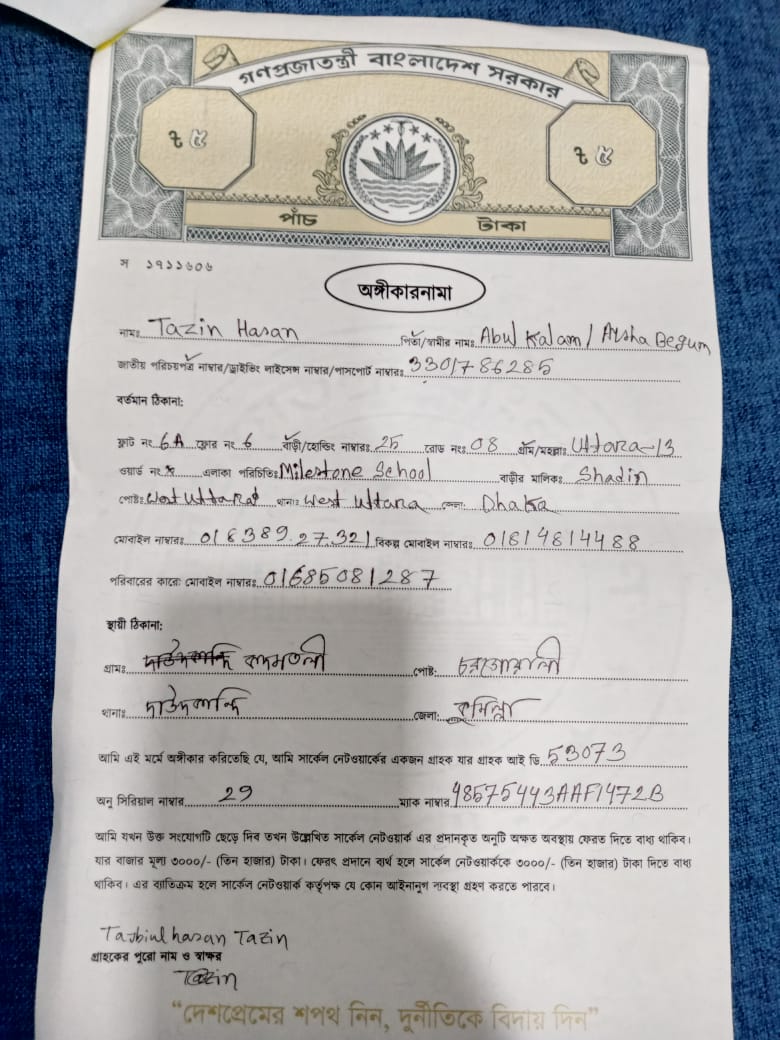 গণপ্রজাতন্ত্রী বাংলাদেশ সরকার
৳ ৫ ৳ ৫
পাঁচ টাকা
স ১৭১১৬০৬
অঙ্গীকারনামা
নামঃ Tazin Hasan পিতা/স্বামীর নামঃ Abul Kalam / Aysha Begum
জাতীয় পরিচয়পত্র নাম্বার/ড্রাইভিং লাইসেন্স নাম্বার/পাসপোর্ট নাম্বারঃ 3301786285
বর্তমান ঠিকানা:
ফ্লাট নং 6A ফ্লোর নং 6 বাড়ী/হোল্ডিং নাম্বারঃ 25 রোড নংঃ 08 গ্রাম/মহল্লাঃ Uttara-13
ওয়ার্ড নং এলাকা পরিচিতিঃ Milestone School বাড়ীর মালিকঃ Shadin
পোষ্টঃ West Uttara থানাঃ West Uttara জেলাঃ Dhaka
মোবাইল নাম্বারঃ 01838927321 বিকল্প মোবাইল নাম্বারঃ 01814814488
পরিবারের কারো মোবাইল নাম্বারঃ 01685081287
স্থায়ী ঠিকানা:
গ্রামঃ কদমতলী পোষ্ট:
থানাঃ দাউদকান্দি জেলা: কুমিল্লা
আমি এই মর্মে অঙ্গীকার করিতেছি যে, আমি সার্কেল নেটওয়ার্কের একজন গ্রাহক যার গ্রাহক আই ডি 53073
অনু সিরিয়াল নাম্বার 29 ম্যাক নাম্বার 48575443AAF1472B
আমি যখন উক্ত সংযোগটি ছেড়ে দিব তখন উল্লেখিত সার্কেল নেটওয়ার্ক এর প্রদানকৃত অনুটি অক্ষত অবস্থায় ফেরত দিতে বাধ্য থাকিব।
যার বাজার মূল্য ৩০০০/- (তিন হাজার) টাকা। ফেরৎ প্রদানে ব্যর্থ হলে সার্কেল নেটওয়ার্ককে ৩০০০/- (তিন হাজার) টাকা দিতে বাধ্য
থাকিব। এর ব্যতিক্রম হলে সার্কেল নেটওয়ার্ক কর্তৃপক্ষ যে কোন আইনানুগ ব্যবস্থা গ্রহণ করতে পারবে।
Tajbiul hasan Tazin
গ্রাহকের পুরো নাম ও স্বাক্ষর
Tazin
“দেশপ্রেমের শপথ নিন, দুর্নীতিকে বিদায় দিন”